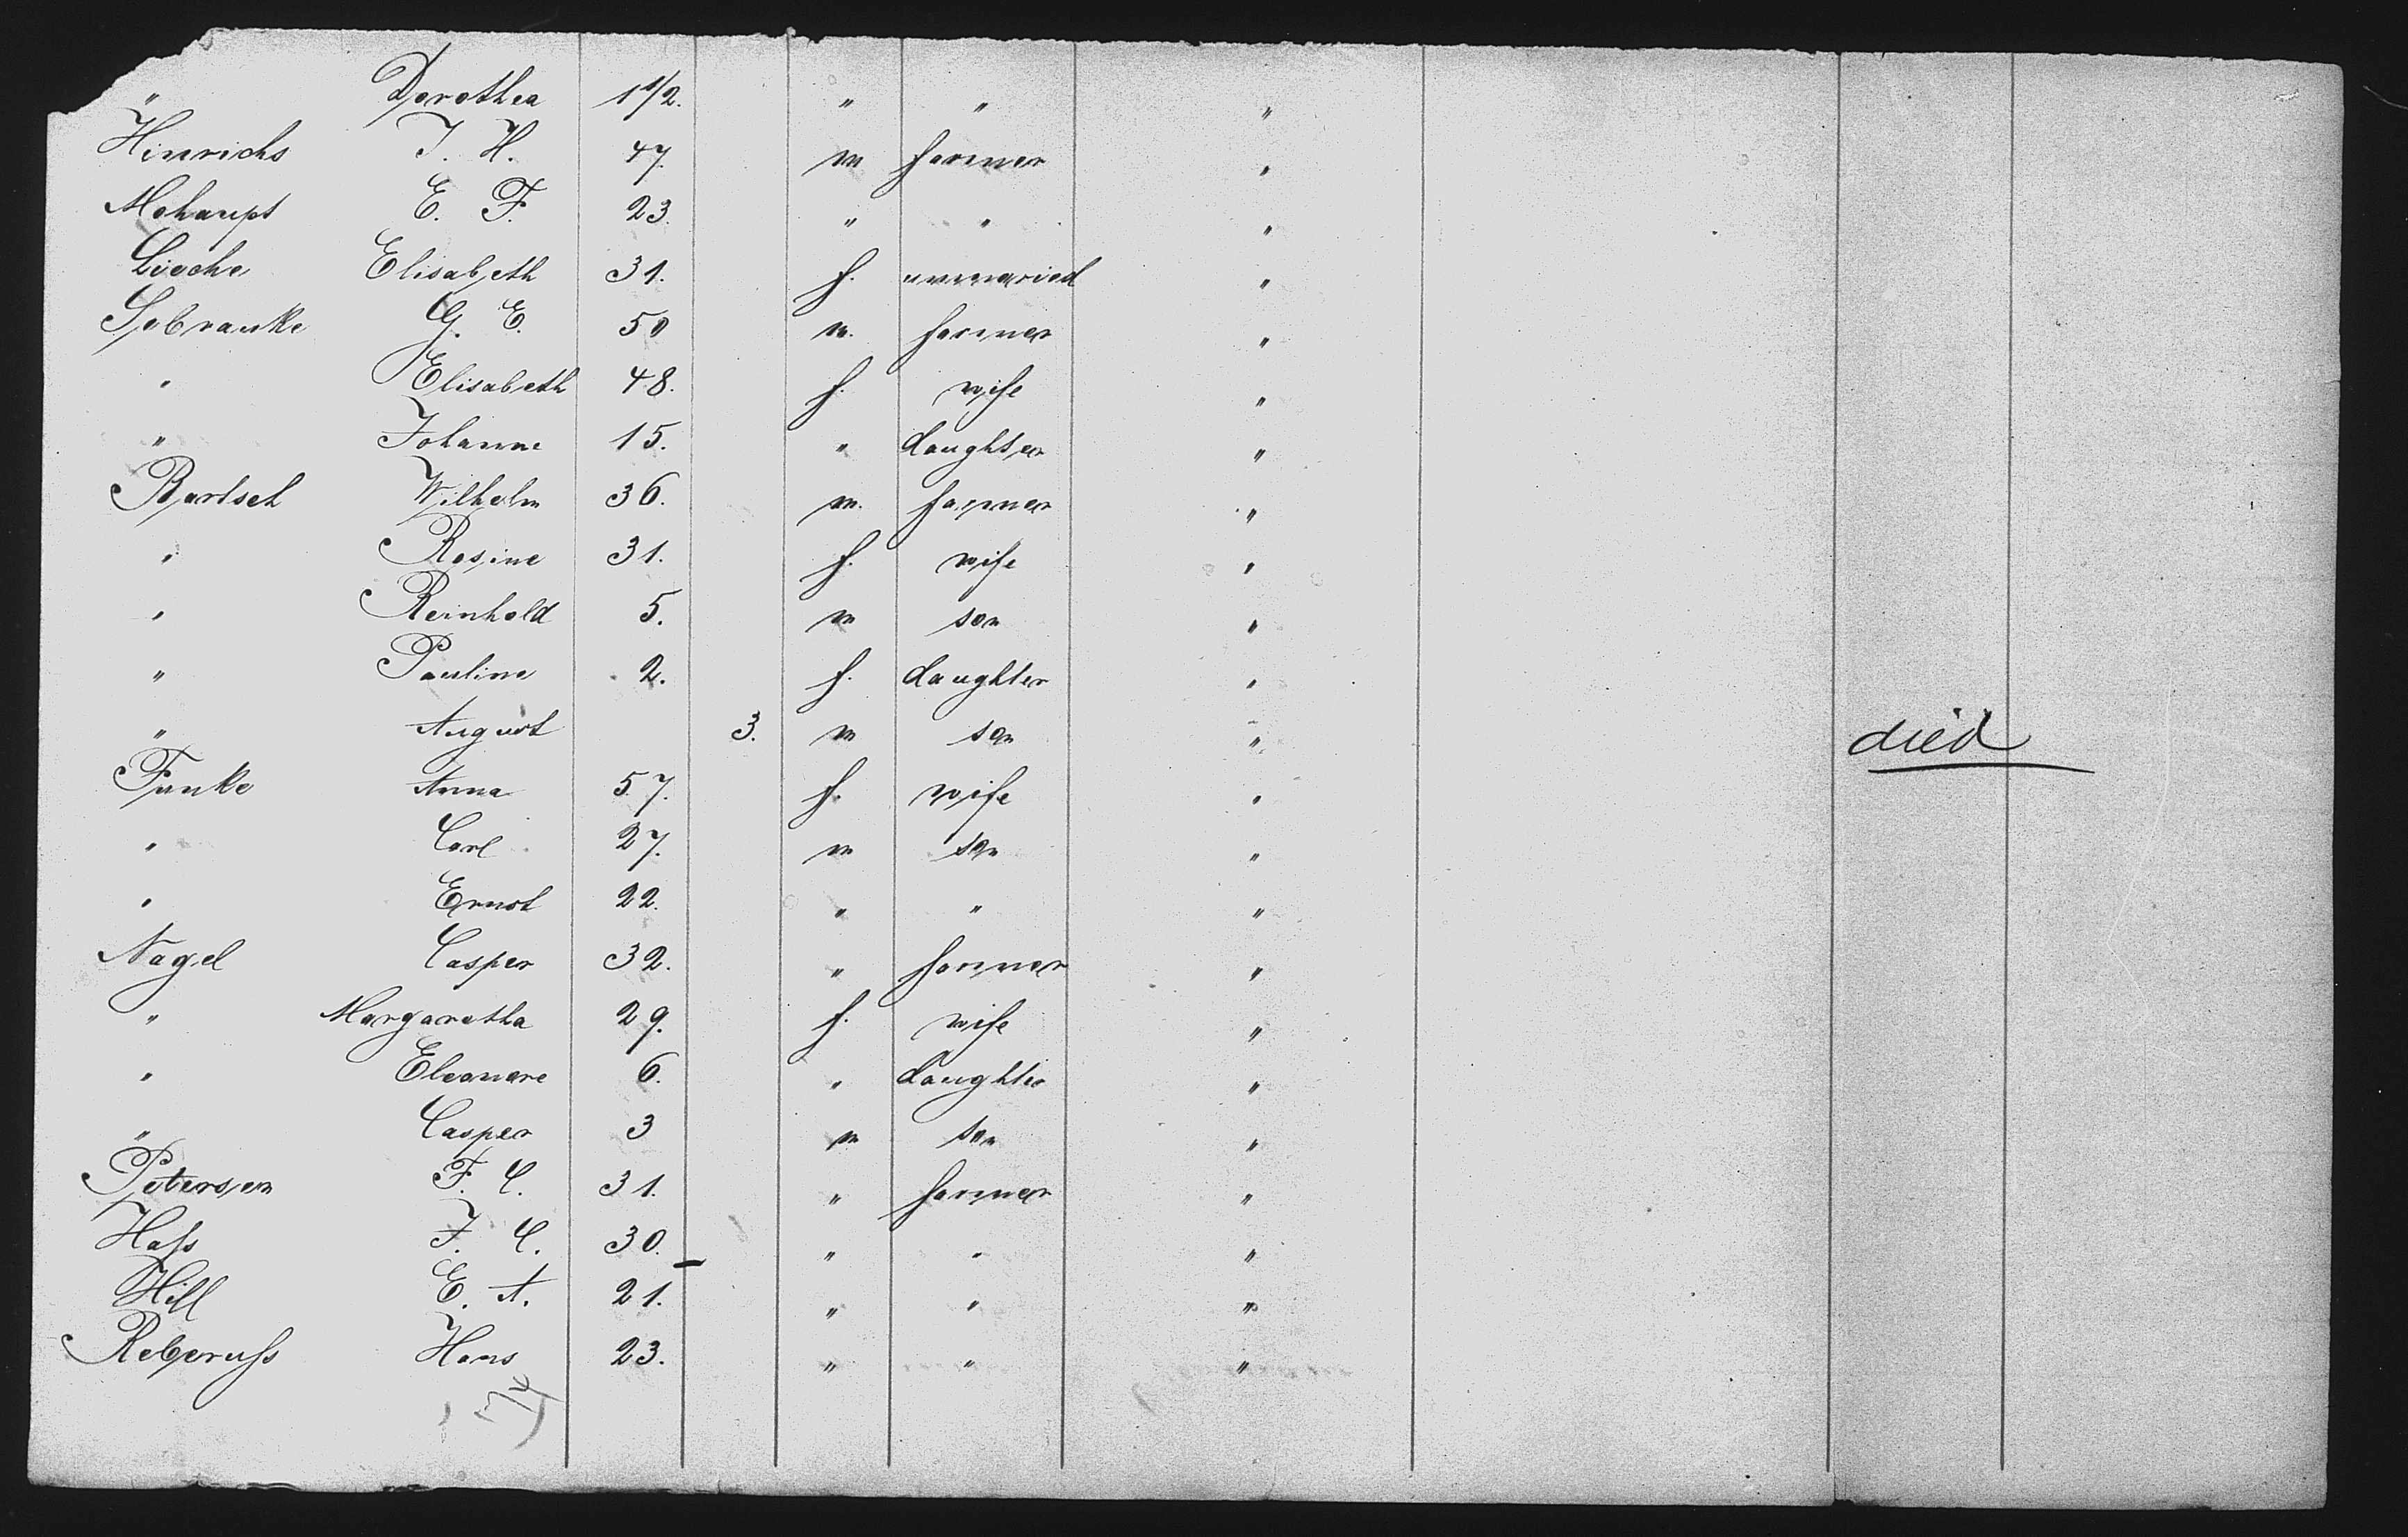 " Dorothea 1 1/2. " " "
Hinrichs J. H. 47. m farmer "
Mohaupt E. F. 23. " " "
Elisabeth 31. f. unmaried "
Sobranke G. E. 50 m. farmer "
" Elisabeth 48. f. wife "
" Johanne 15. " daughter "
Bartsch Wilhelm 36. m. farmer "
" Rosine 31. f. wife "
" Reinhold 5. m son "
" Pauline 2. f. daughter "
" August 3. m son " died
Funke Anna 57. f. wife "
" Carl 27. m son "
" Ernst 22. " " "
Nagel Casper 32. " farmer "
" Margaretha 29. f. wife "
" Eleonore 6. " daughter "
" Casper 3 m son "
Petersen F. C. 31. " farmer "
Haſs J. C. 30. " " "
Hill E. A. 21. " " "
Hans 23. " " "